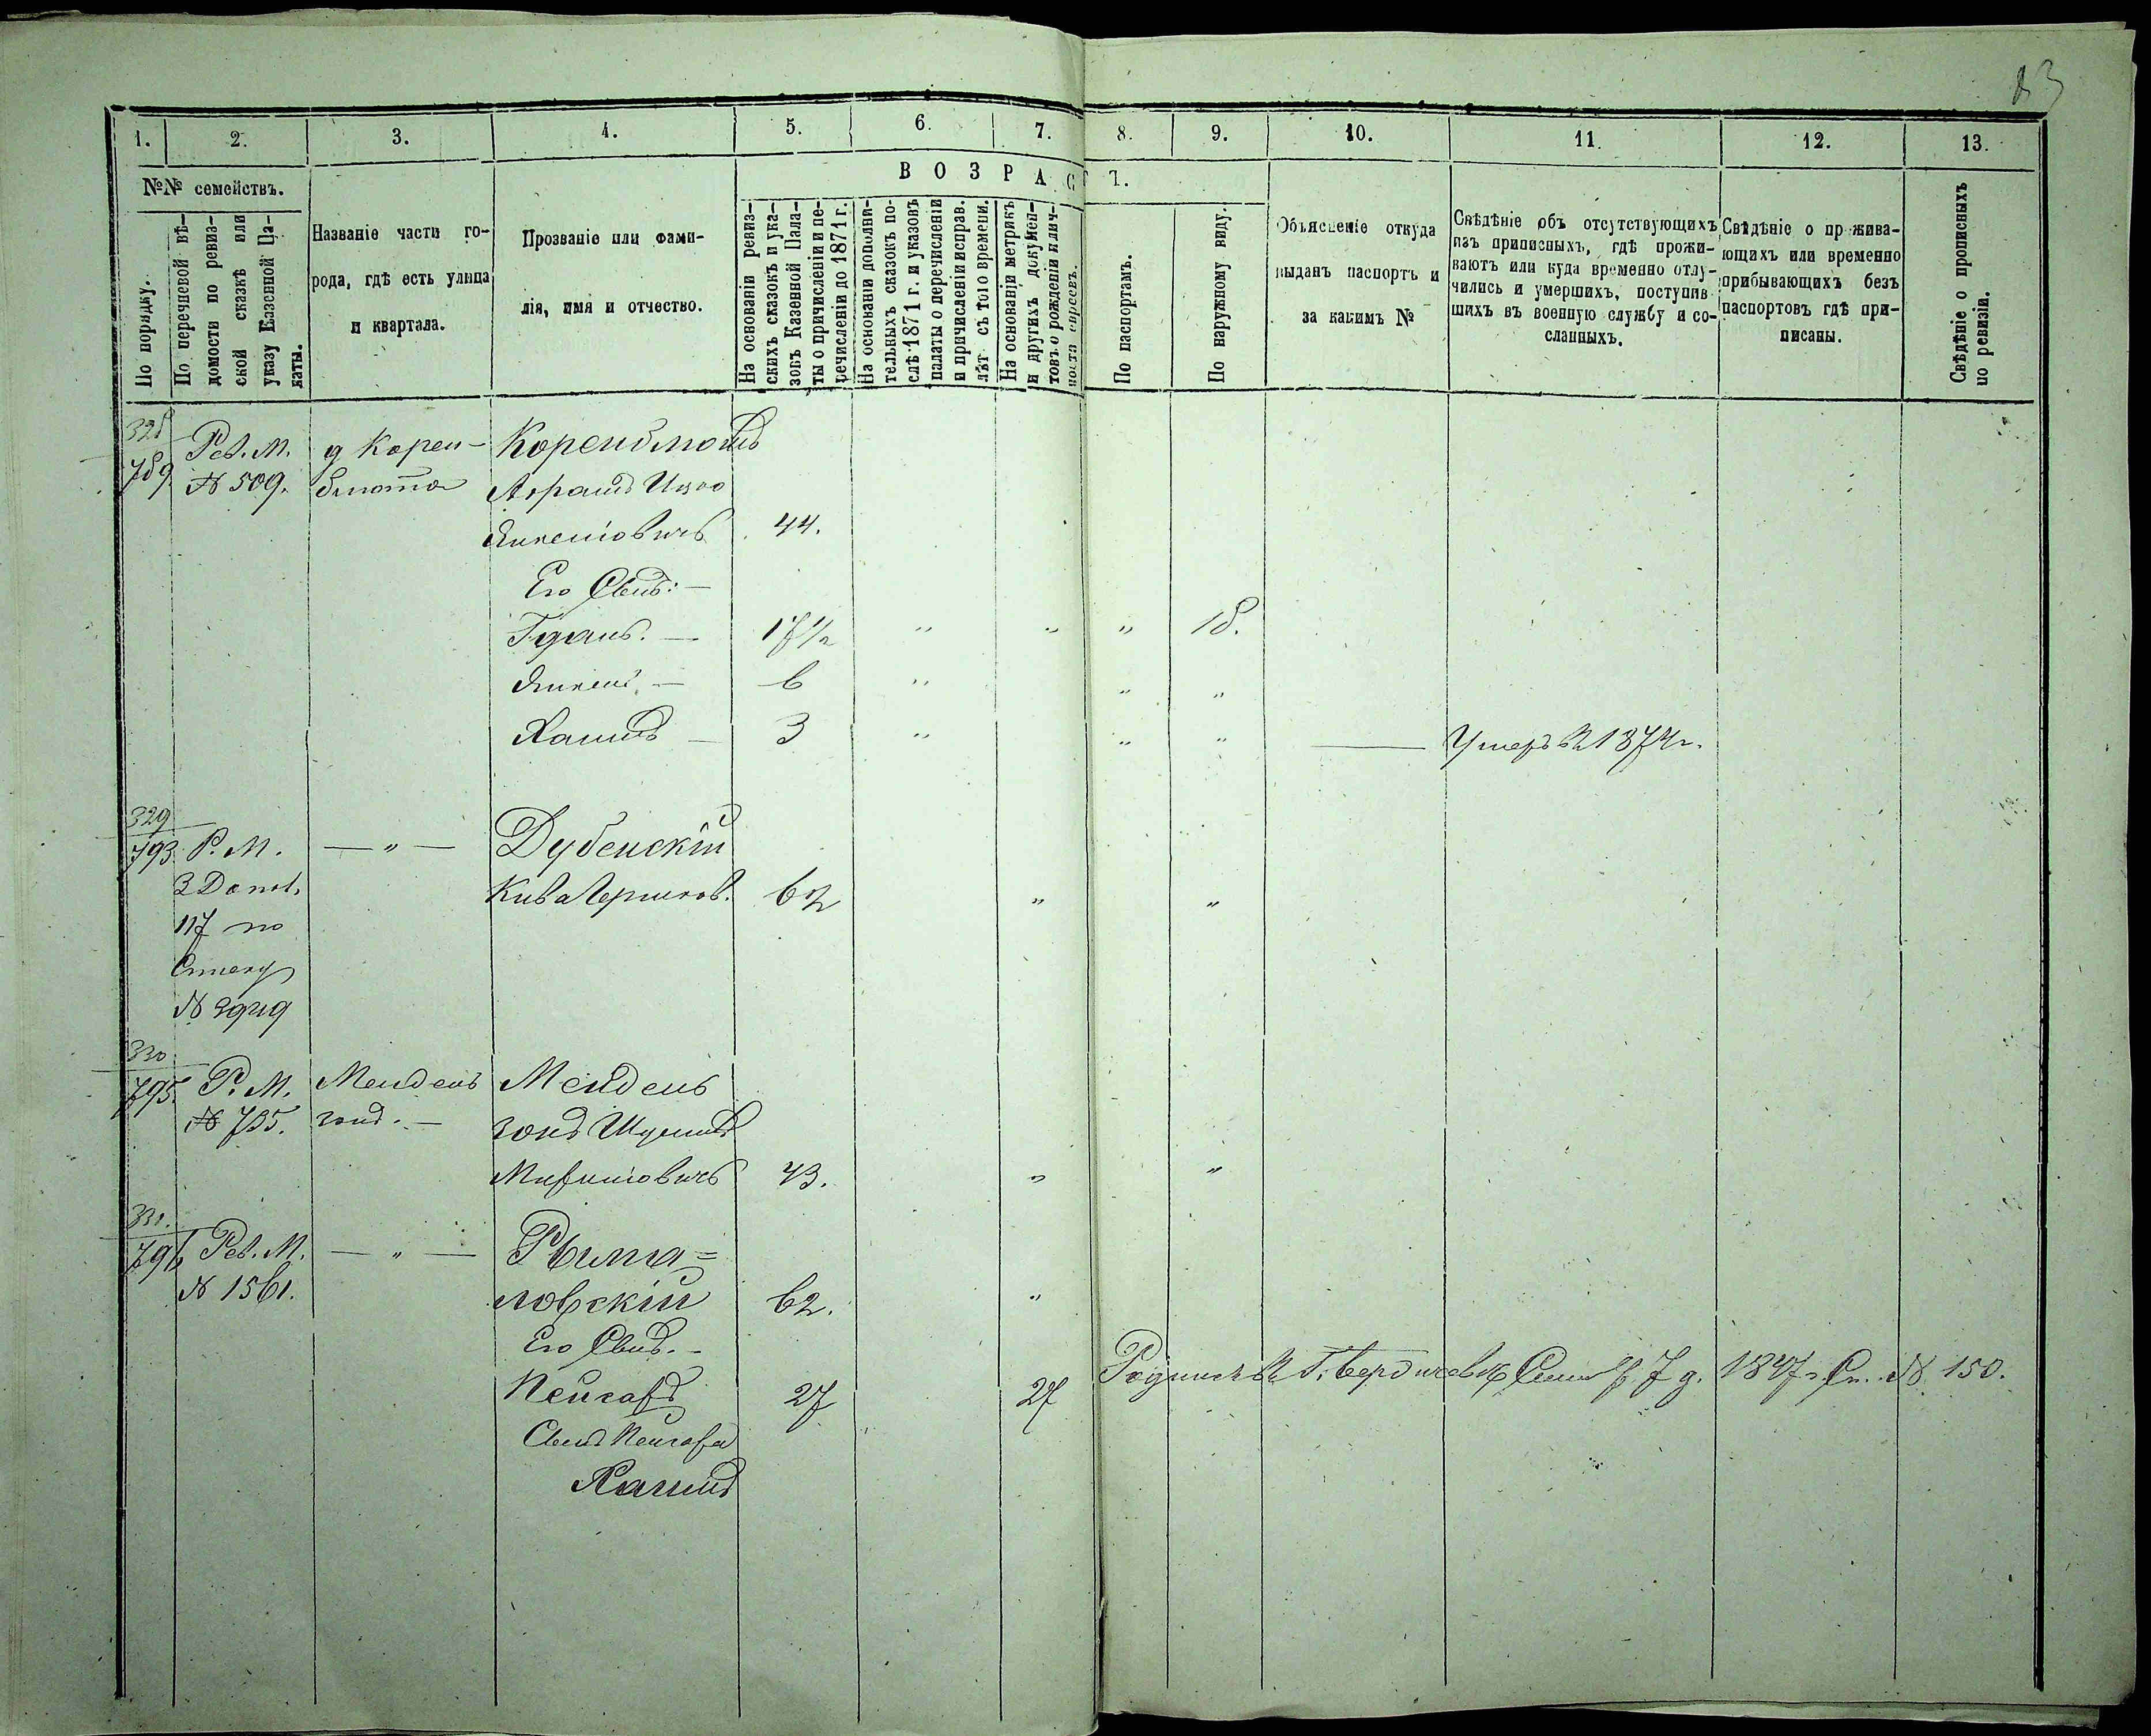 83
1. 2. 3. 4. 5. 6. 7. 8. 9. 10. 11. 12. 13.
№№ семействъ.
По порядку.
По перечневой вѣ-
домости по ревиз-
ской сказкѣ или
указу Казенной Па-
латы.
Названіе части го-
рода, гдѣ есть улица
и квартала.
Прозваніе или фами-
лія, имя и отчество.
ВОЗРАСТЪ.
На основаніи ревиз-
скихъ сказокъ и ука-
зовъ Казенной Пала-
ты о причисленіи и пе-
речисленіи до 1871 г.
На основаніи дополни-
тельныхъ сказокъ по-
слѣ 1871 г. и указовъ
палаты о перечисленіи
и причисленіи исправ.
лѣт съ того времени.
На основаніи метрикъ
и другихъ докумен-
товъ о рожденіи и лич-
ности евреевъ.
По паспортамъ.
По наружному виду.
Объясненіе откуда
выданъ паспортъ и
за какимъ №
Свѣдѣніе объ отсутствующихъ
изъ приписныхъ, гдѣ прожи-
ваютъ или куда временно отлу-
чились и умершихъ, поступив-
шихъ въ военную службу и со-
сланныхъ.
Свѣдѣніе о прожива-
ющихъ или временно
прибывающихъ безъ
паспортовъ гдѣ при-
писаны.
Свѣдѣніе о прописныхъ
по ревизіи.
328
789 Рев. М. д Корен- Коренблютъ
№ 509. блюта Абрамъ Ицко
Янкеліовичъ 44.
Его Сынъ: —
Гданъ. — 17 1/2 " " " 18.
Янкель — 6 " " "
Хаимъ — 3 " " " — Умеръ въ 1874 г.
329
793 Р. М. — " — Дубенскій
3 Допол. Кива Берков. 62 " "
117 по
Списку
№
330
795. Р. М. Мендель Мендель
№ 735. зонъ. — зонъ Шулимъ
43. " "
331.
796 Рев. М. — " — Рыма=
№ 1561. ловскій 62. "
Его Сынъ. —
Пейсахъ 27 27 Родился въ г. Бердичевѣ 7 д. 1847 г. Св. № 150.
Сынъ Пейсаха
Хаимъ